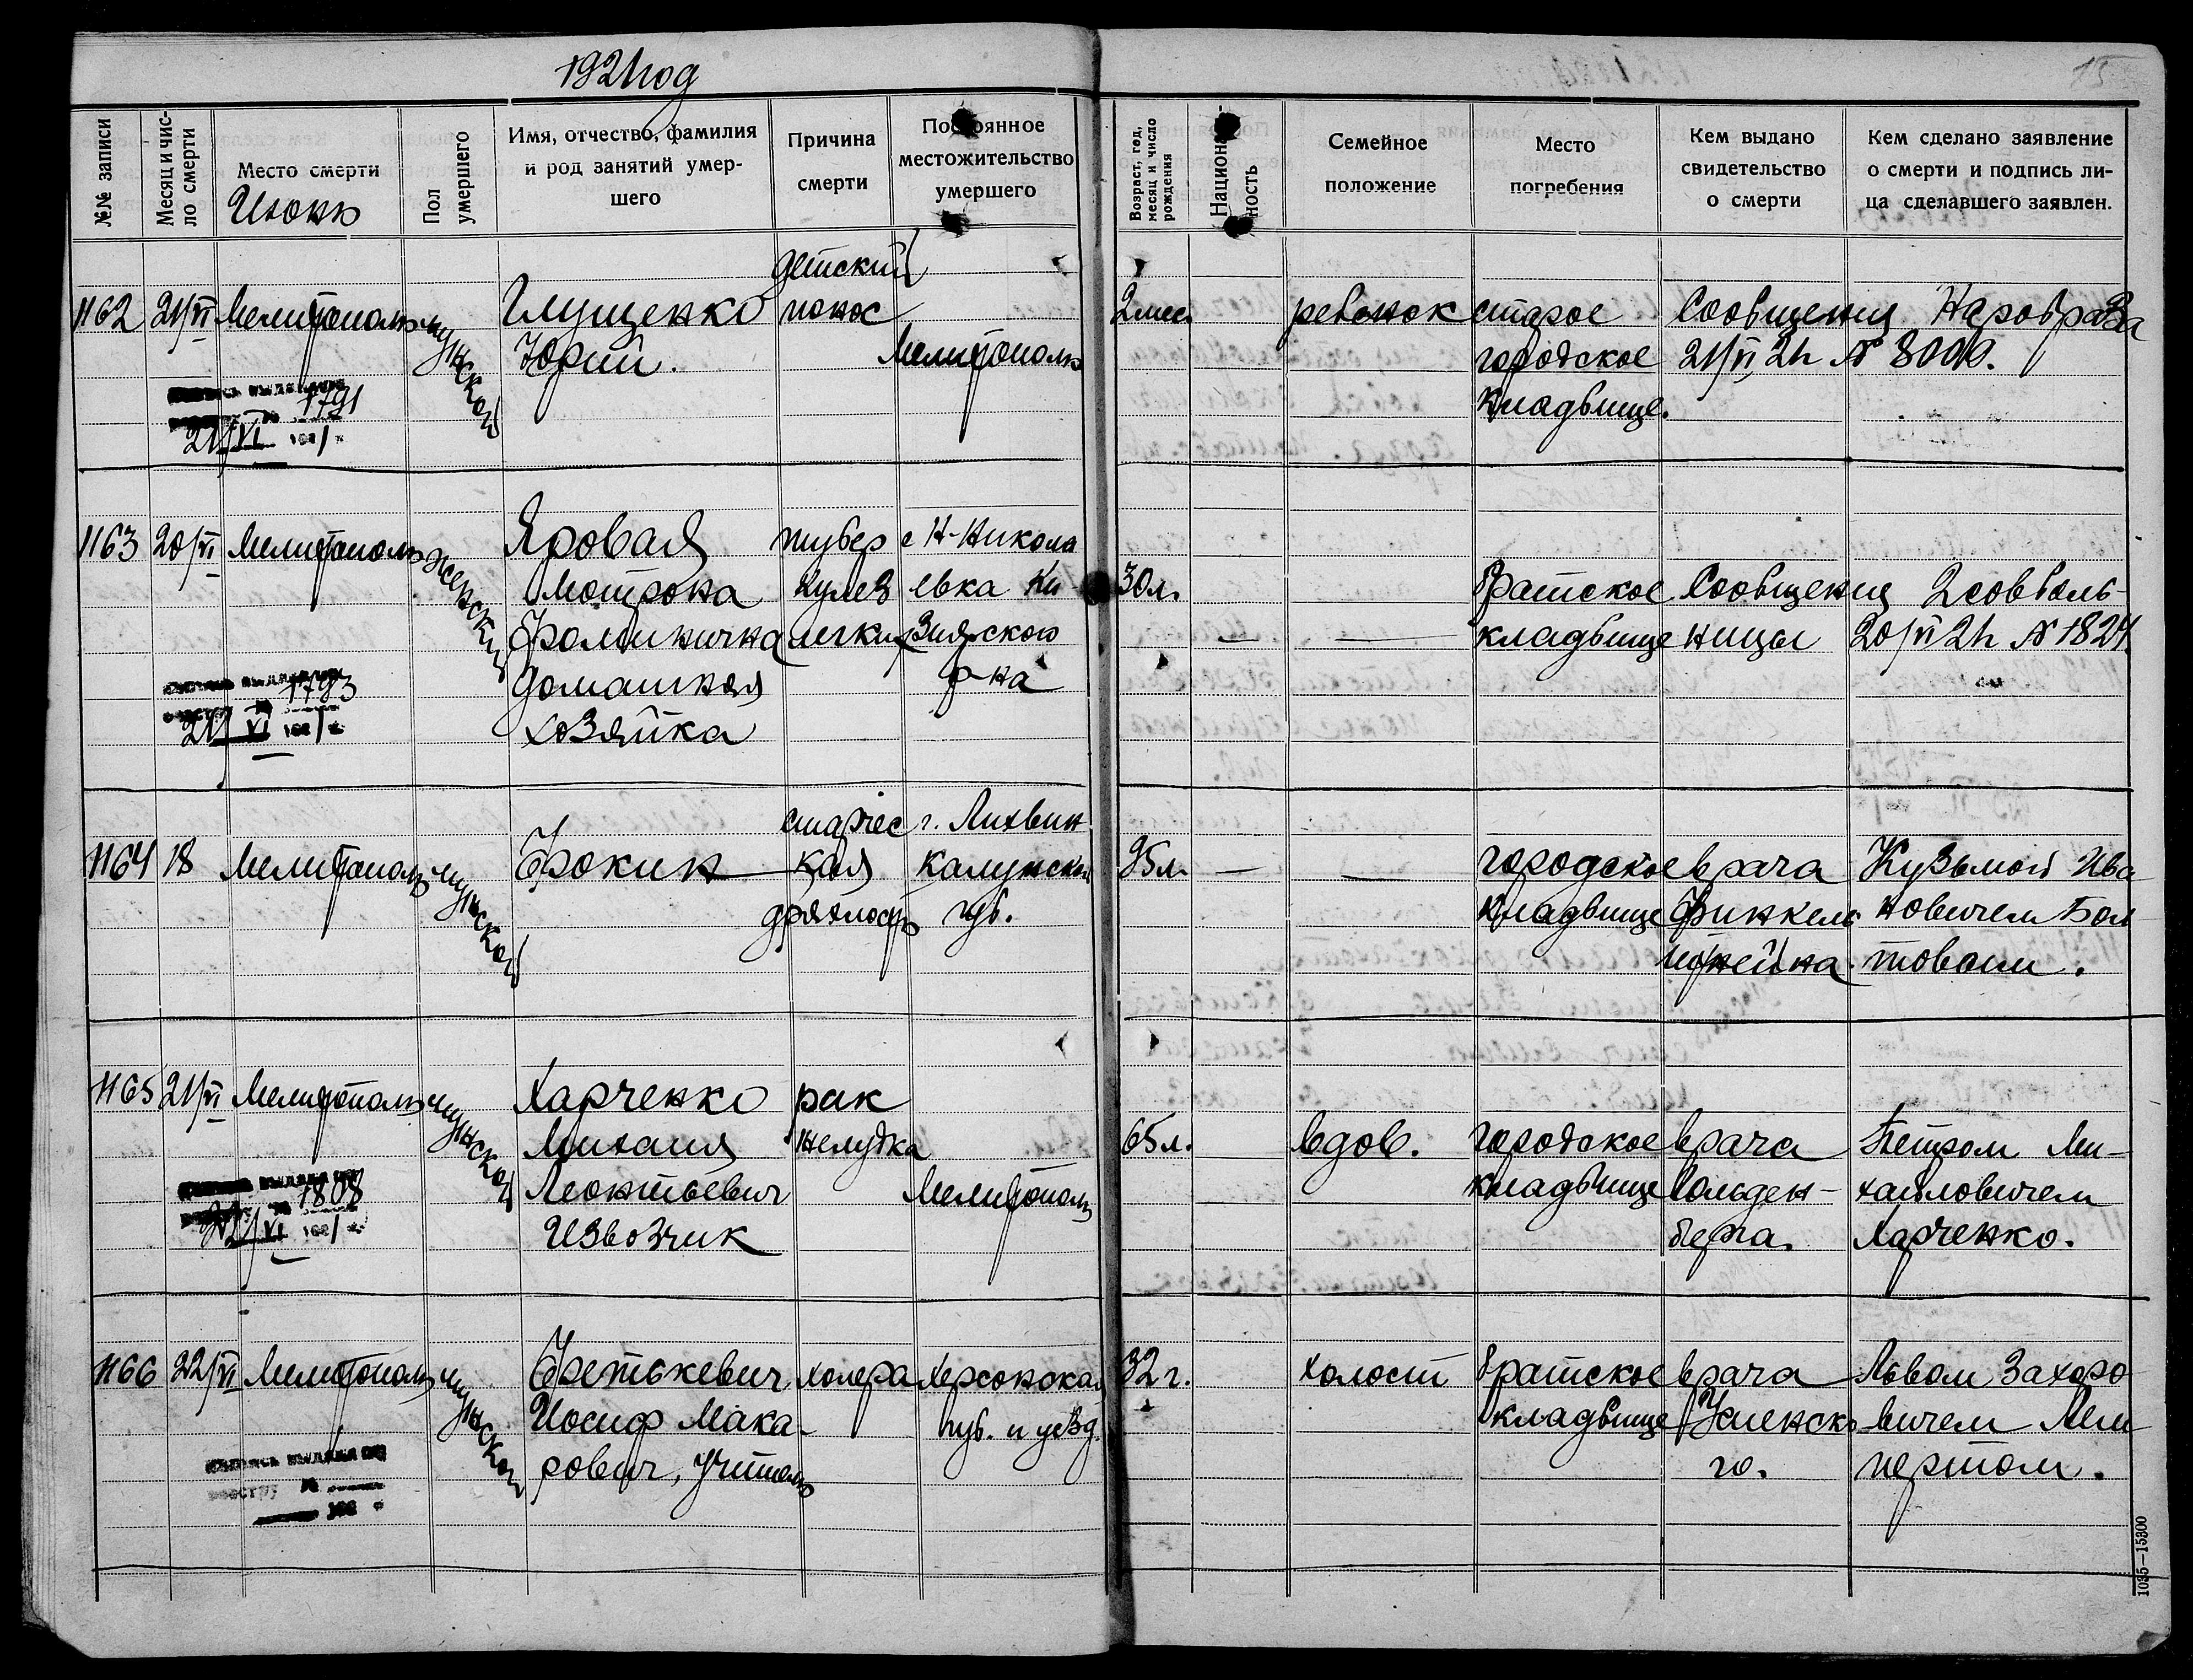 1921 год
15
№№ записи
Месяц и чис-
ло смерти
Место смерти
Июнь
Пол
умершего
Имя, отчество, фамилия
и род занятий умер-
шего
Причина
смерти
Постоянное
местожительство
умершего
Возраст, год,
месяц и число
рождения
Национ
ность
Семейное
положение
Место
погребения
Кем выдано
свидетельство
о смерти
Кем сделано заявление
о смерти и подпись ли-
ца сделавшего заявлен.
1162
21/VI
Мелитополь
мужской
Глущенко
Юрий.
детский
понос
Мелитополь
2 мес.
ребенок
старое
городское
кладбище.
Сообщения Наробраза
21/VI 21г № 8000.
1791
21/VI
1163
20/VI
Мелитополь
женский
Яровая
Мотрона
Фоминична
домашняя
хозяйка
тубер
кулез
легких
с Н-Никола
евка Ки
зиярского
р-на
30 л.
братское
кладбище
Сообщения 2 сов боль-
ницы 20/VI 21г № 1824.
1793
21/VI
1164
18
Мелитополь
мужской
Фокин
старчес
кая
дряхлость
г. Лихвин
Калужской
губ.
95 л.
городское
кладбище
врача
Финкель
штейна.
Кузьмой Ива
новичем Бол
товым.
1165
21/VI
Мелитополь
мужской
Харченко
Михаил
Леонтьевич
извозчик
рак
желудка
Мелитополь
65 л.
вдов.
городское
кладбище
врача
Гольден-
берга.
Петром Ми-
хайловичем
Харченко.
1808
22/VI
1166
22/VI
Мелитополь
мужской
Фетькевич
Иосиф Мака-
рович, учитель
холера
Херсонская
губ. и уезд.
32 г.
холост
братское
кладбище
врача
Успенско
го.
Львом Захаро
вичем
1035—15300